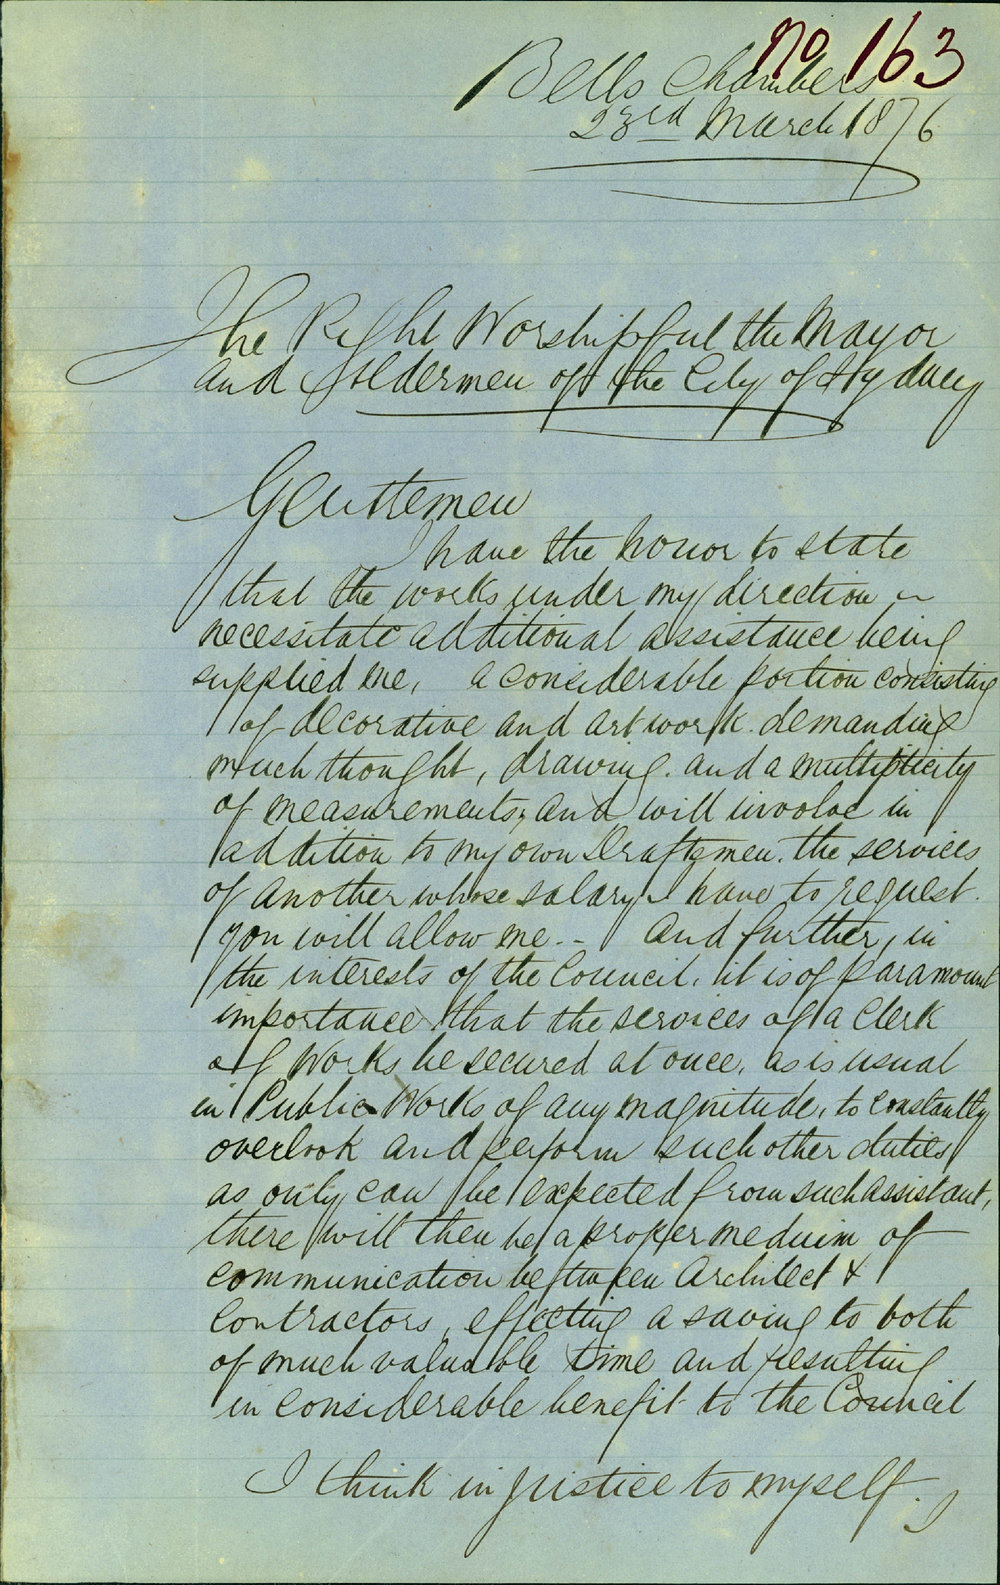 No 163
Bells Chambers
23rd March 1876
The Right Worshipful the Mayor
and Aldermen of the City of Sydney
Gentlemen
I have the honor to state
that the works under my direction
necessitate additional assistance being
supplied me, a considerable portion consisting
of decorative and art work demanding
much thought, drawing, and a multiplicity
of measurements; and will involve in
addition to my own Draftsmen, the services
of another whose salary I have to request
you will allow me. - And further, in
the interests of the Council, it is of paramount
importance that the services of a Clerk
of Works be secured at once, as is usual
in Public Works of any magnitude, to constantly
overlook and perform such other duties
as only can be expected from such assistant,
there will then be a proper medium of
communication between Architect &
Contractors, effecting a saving to both
of much valuable time and resulting
in considerable benefit to the Council
I think in justice to myself. I